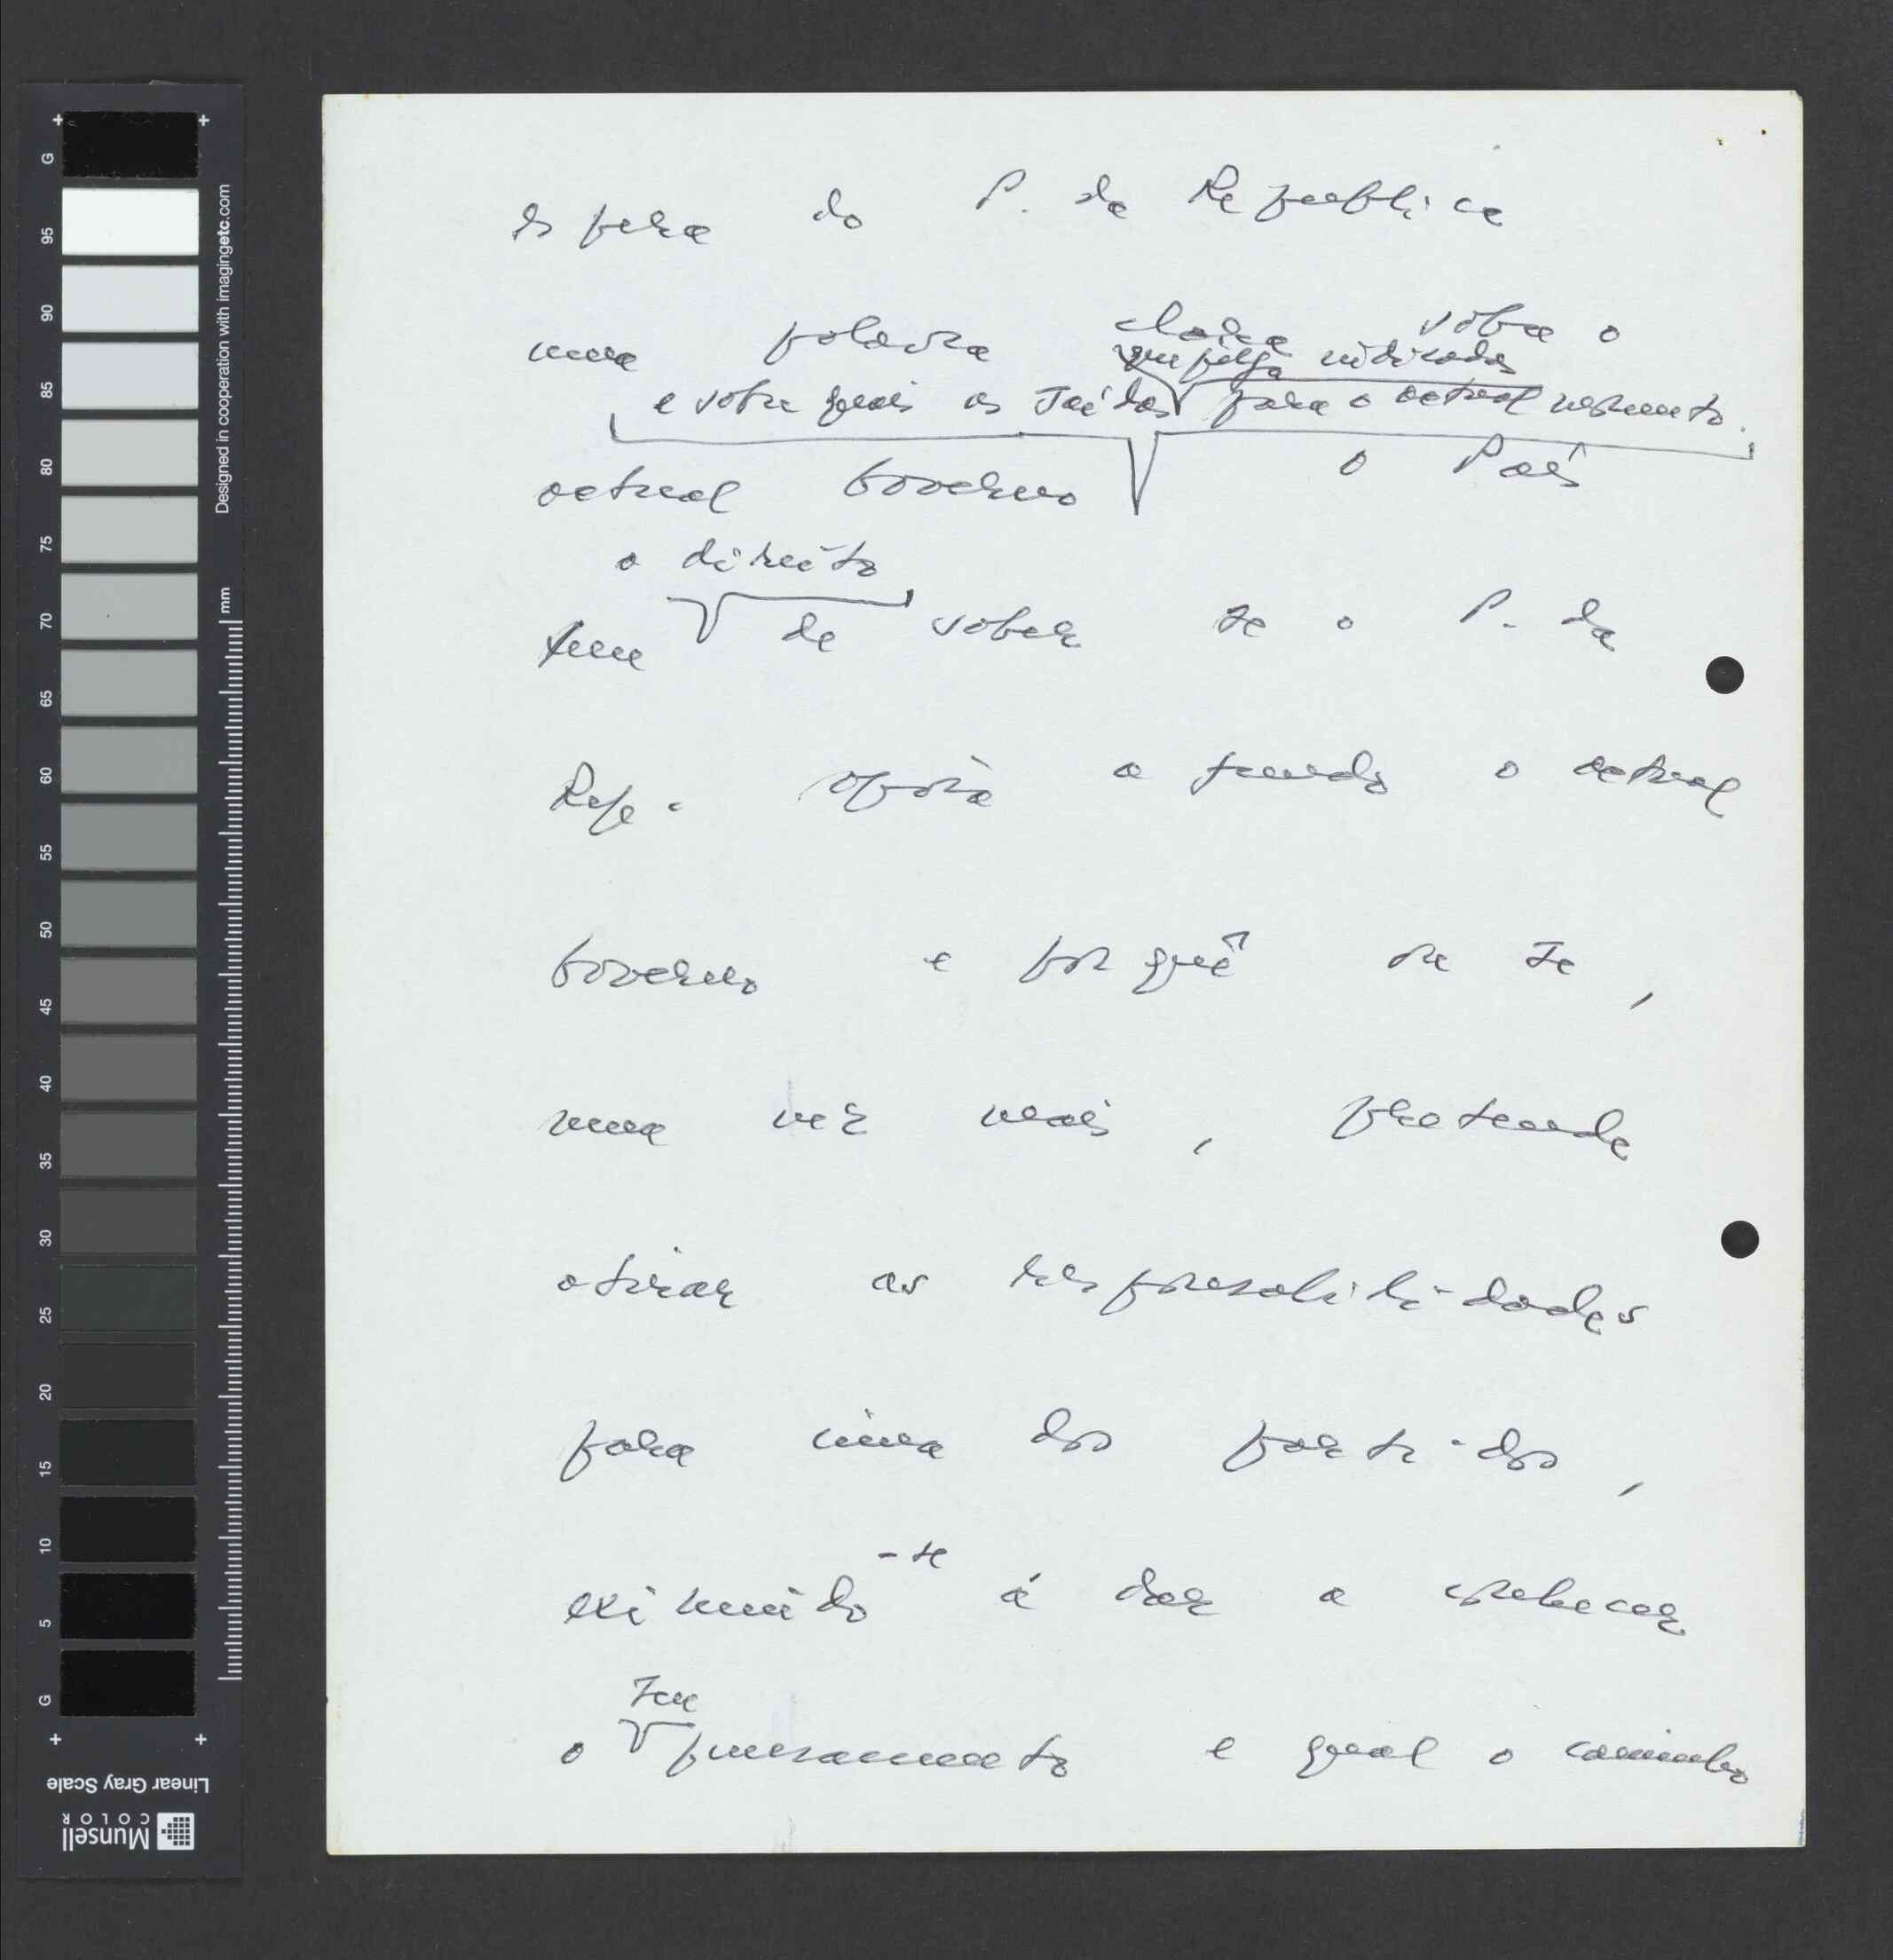 espera do P. da Republica
uma palavra clara sobre o
que julga indicadas
e sobre quais as saídas para o actual momento.
actual Governo o País
o direito
tem de saber se o P. da
Rep. apoia a fundo o actual
Governo e porquê ou se,
uma vez mais, pretende
atirar as responsabilidades
para cima dos partidos,
-se
eximindo á dar a conhecer
seu
o pensamento e qual o caminho
G
95
90
85
80
75
70
65
60
55
50
45
40
35
30
25
20
15
10
5
G
Designed in cooperation with imagingetc.com
mm
Linear Gray Scale
Munsell
COLOR